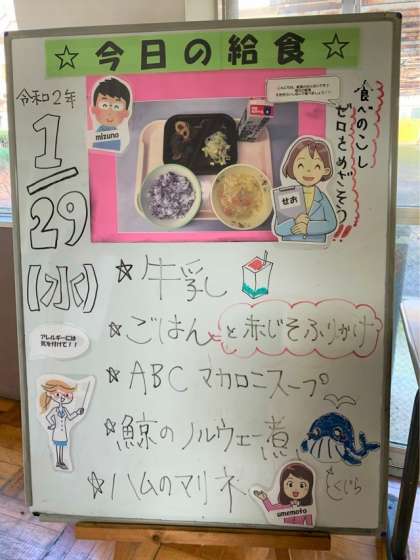 ☆今日の給食☆
令和2年
1/29
(水)
mizuno
食べのこし
ゼロをめざそう!!
せお
☆牛乳
☆ごはんと赤じそふりかけ
☆ABCマカロニスープ
アレルギーには
気を付けて!!
☆鯨のノルウェー煮
☆ハムのマリネ
くじら
umemoto